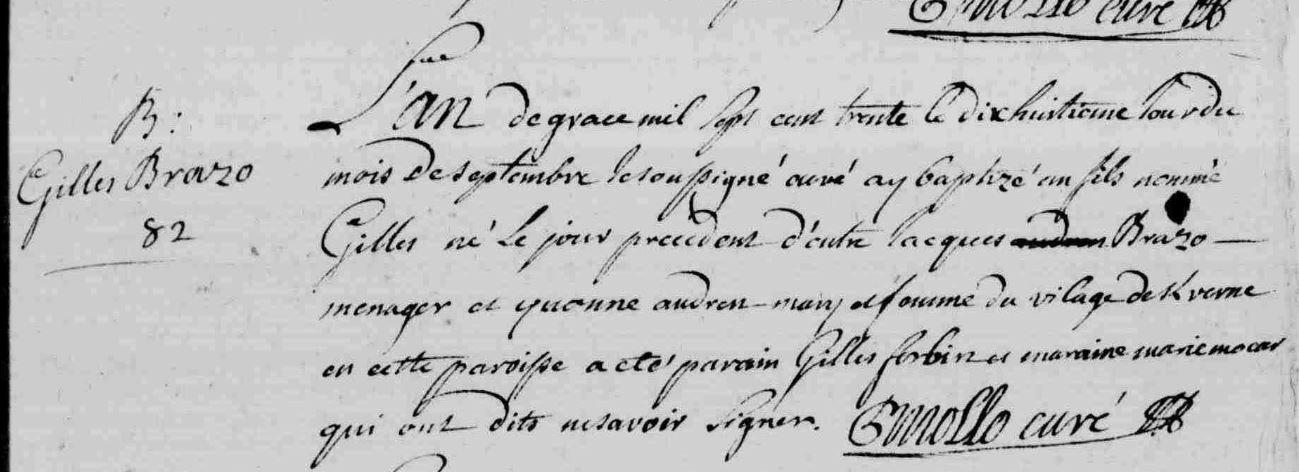 curé
B:
Gilles Brazo
82
L'an de grace mil sept cent trente le dixhuitieme jour du
mois de septembre je soussigné curé ay baptizé un fils nommé
Gilles né le jour precedent d'entre Jacques Brazo
menager et yvonne audren mary et femme du vilage de Kverne
en cette paroisse a eté parain Gilles forbin et maraine marie mocar
qui ont dits ne savoir signer. G mollo curé